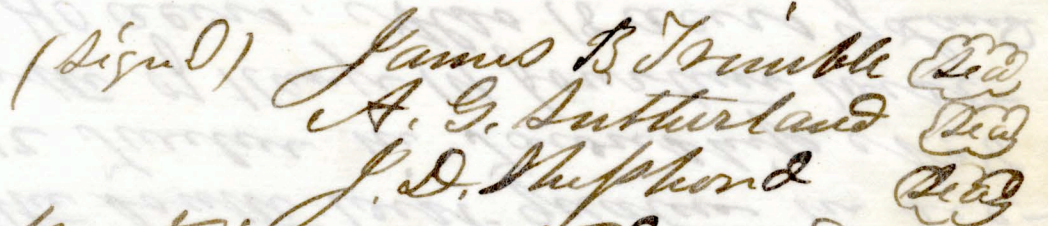 (Signd) James B Trimble Seal
A. G. Sutherland Seal
J. D. Shephord Seal